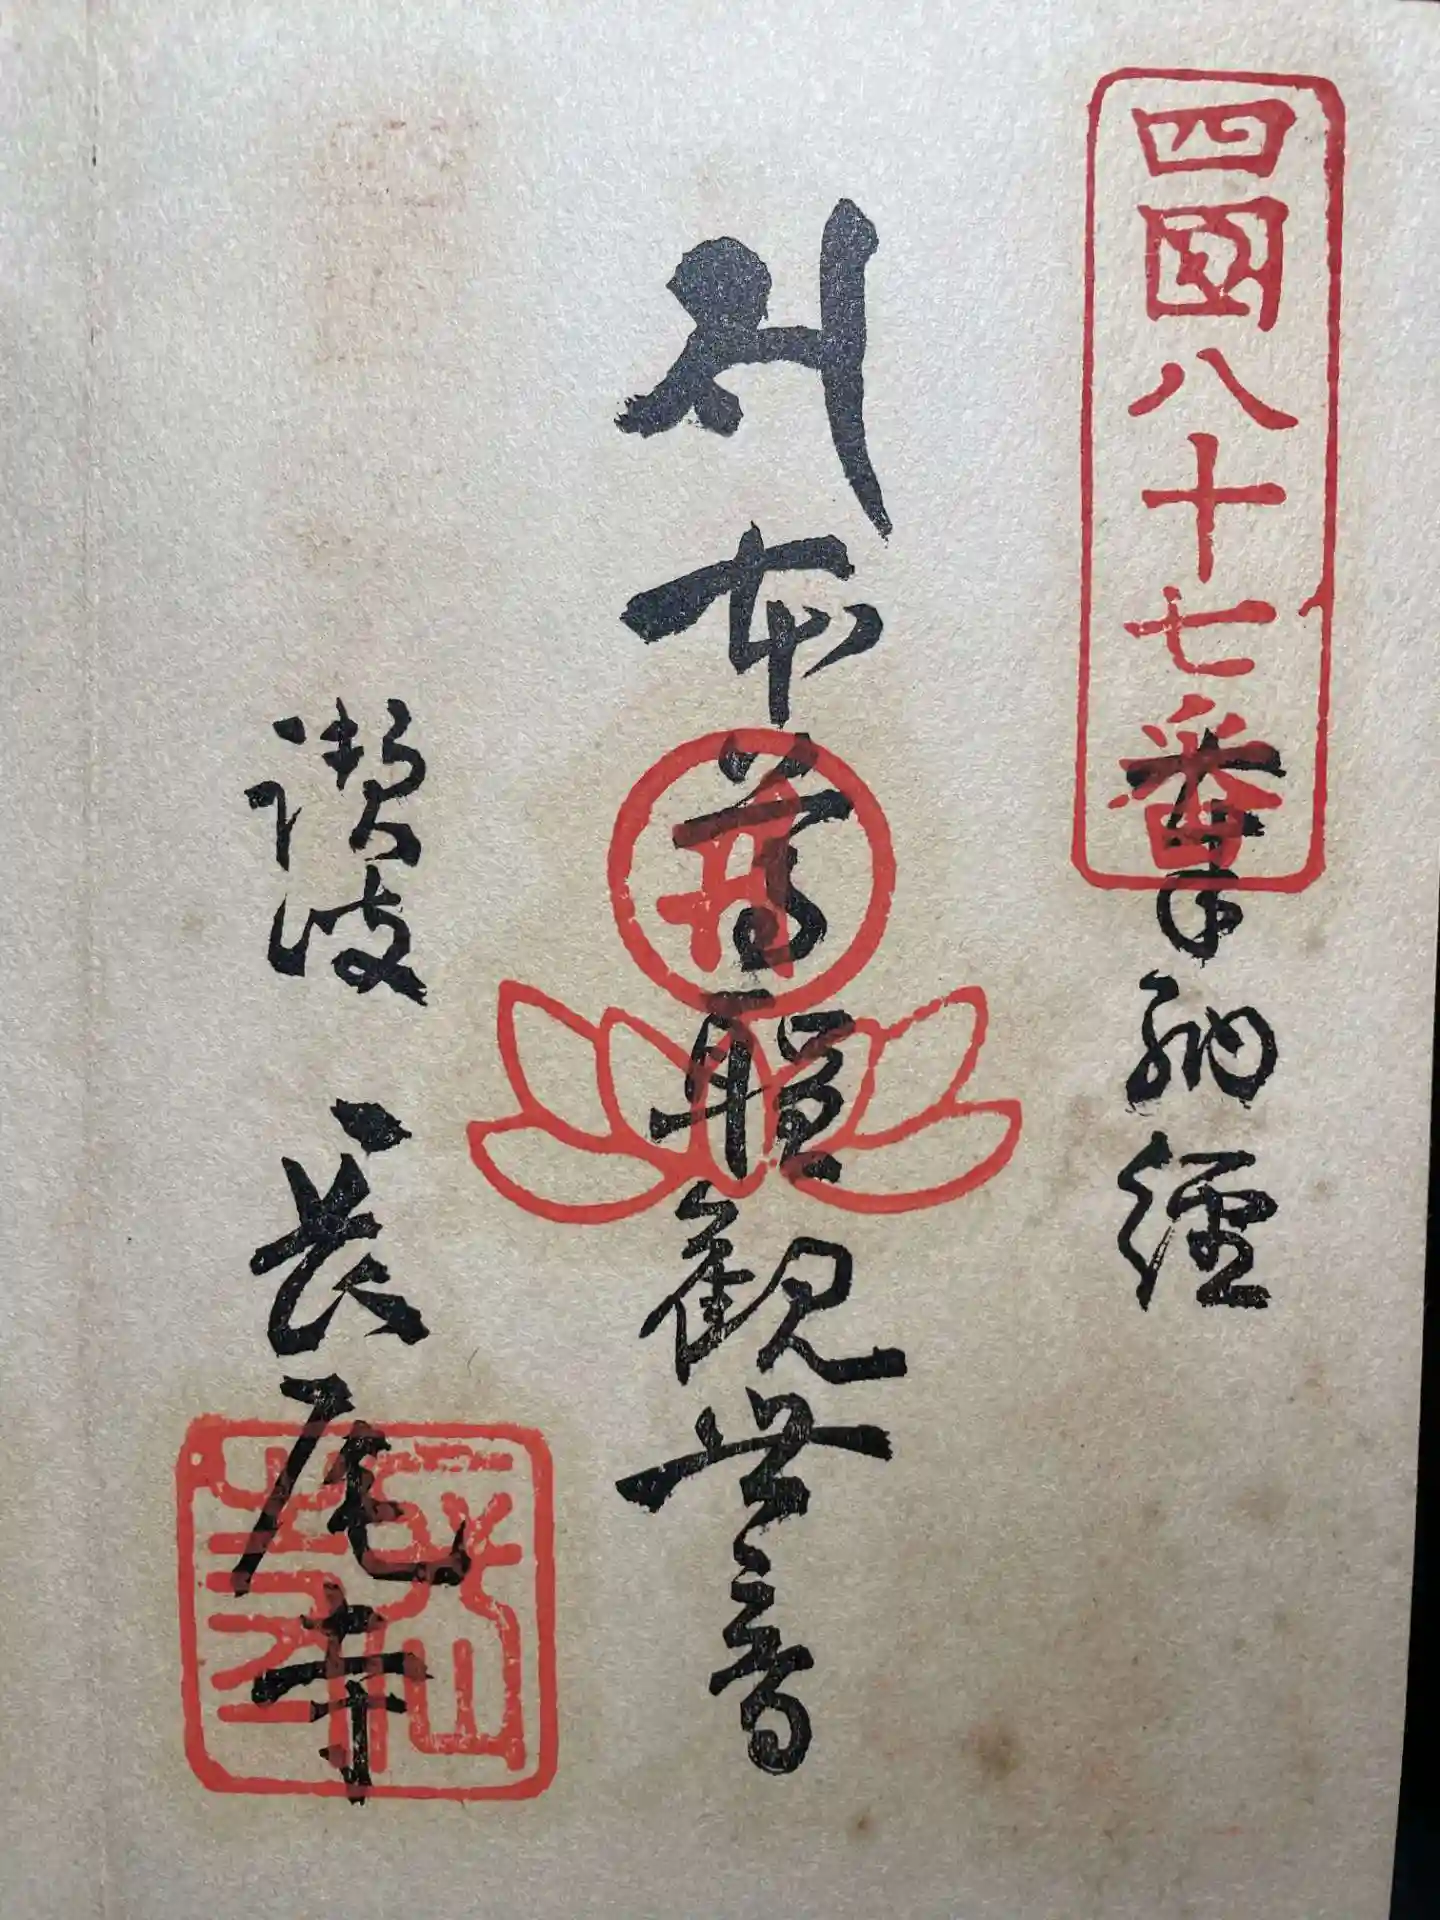 四國八十七番
奉納経
本尊聖観世音
讃岐 長尾寺